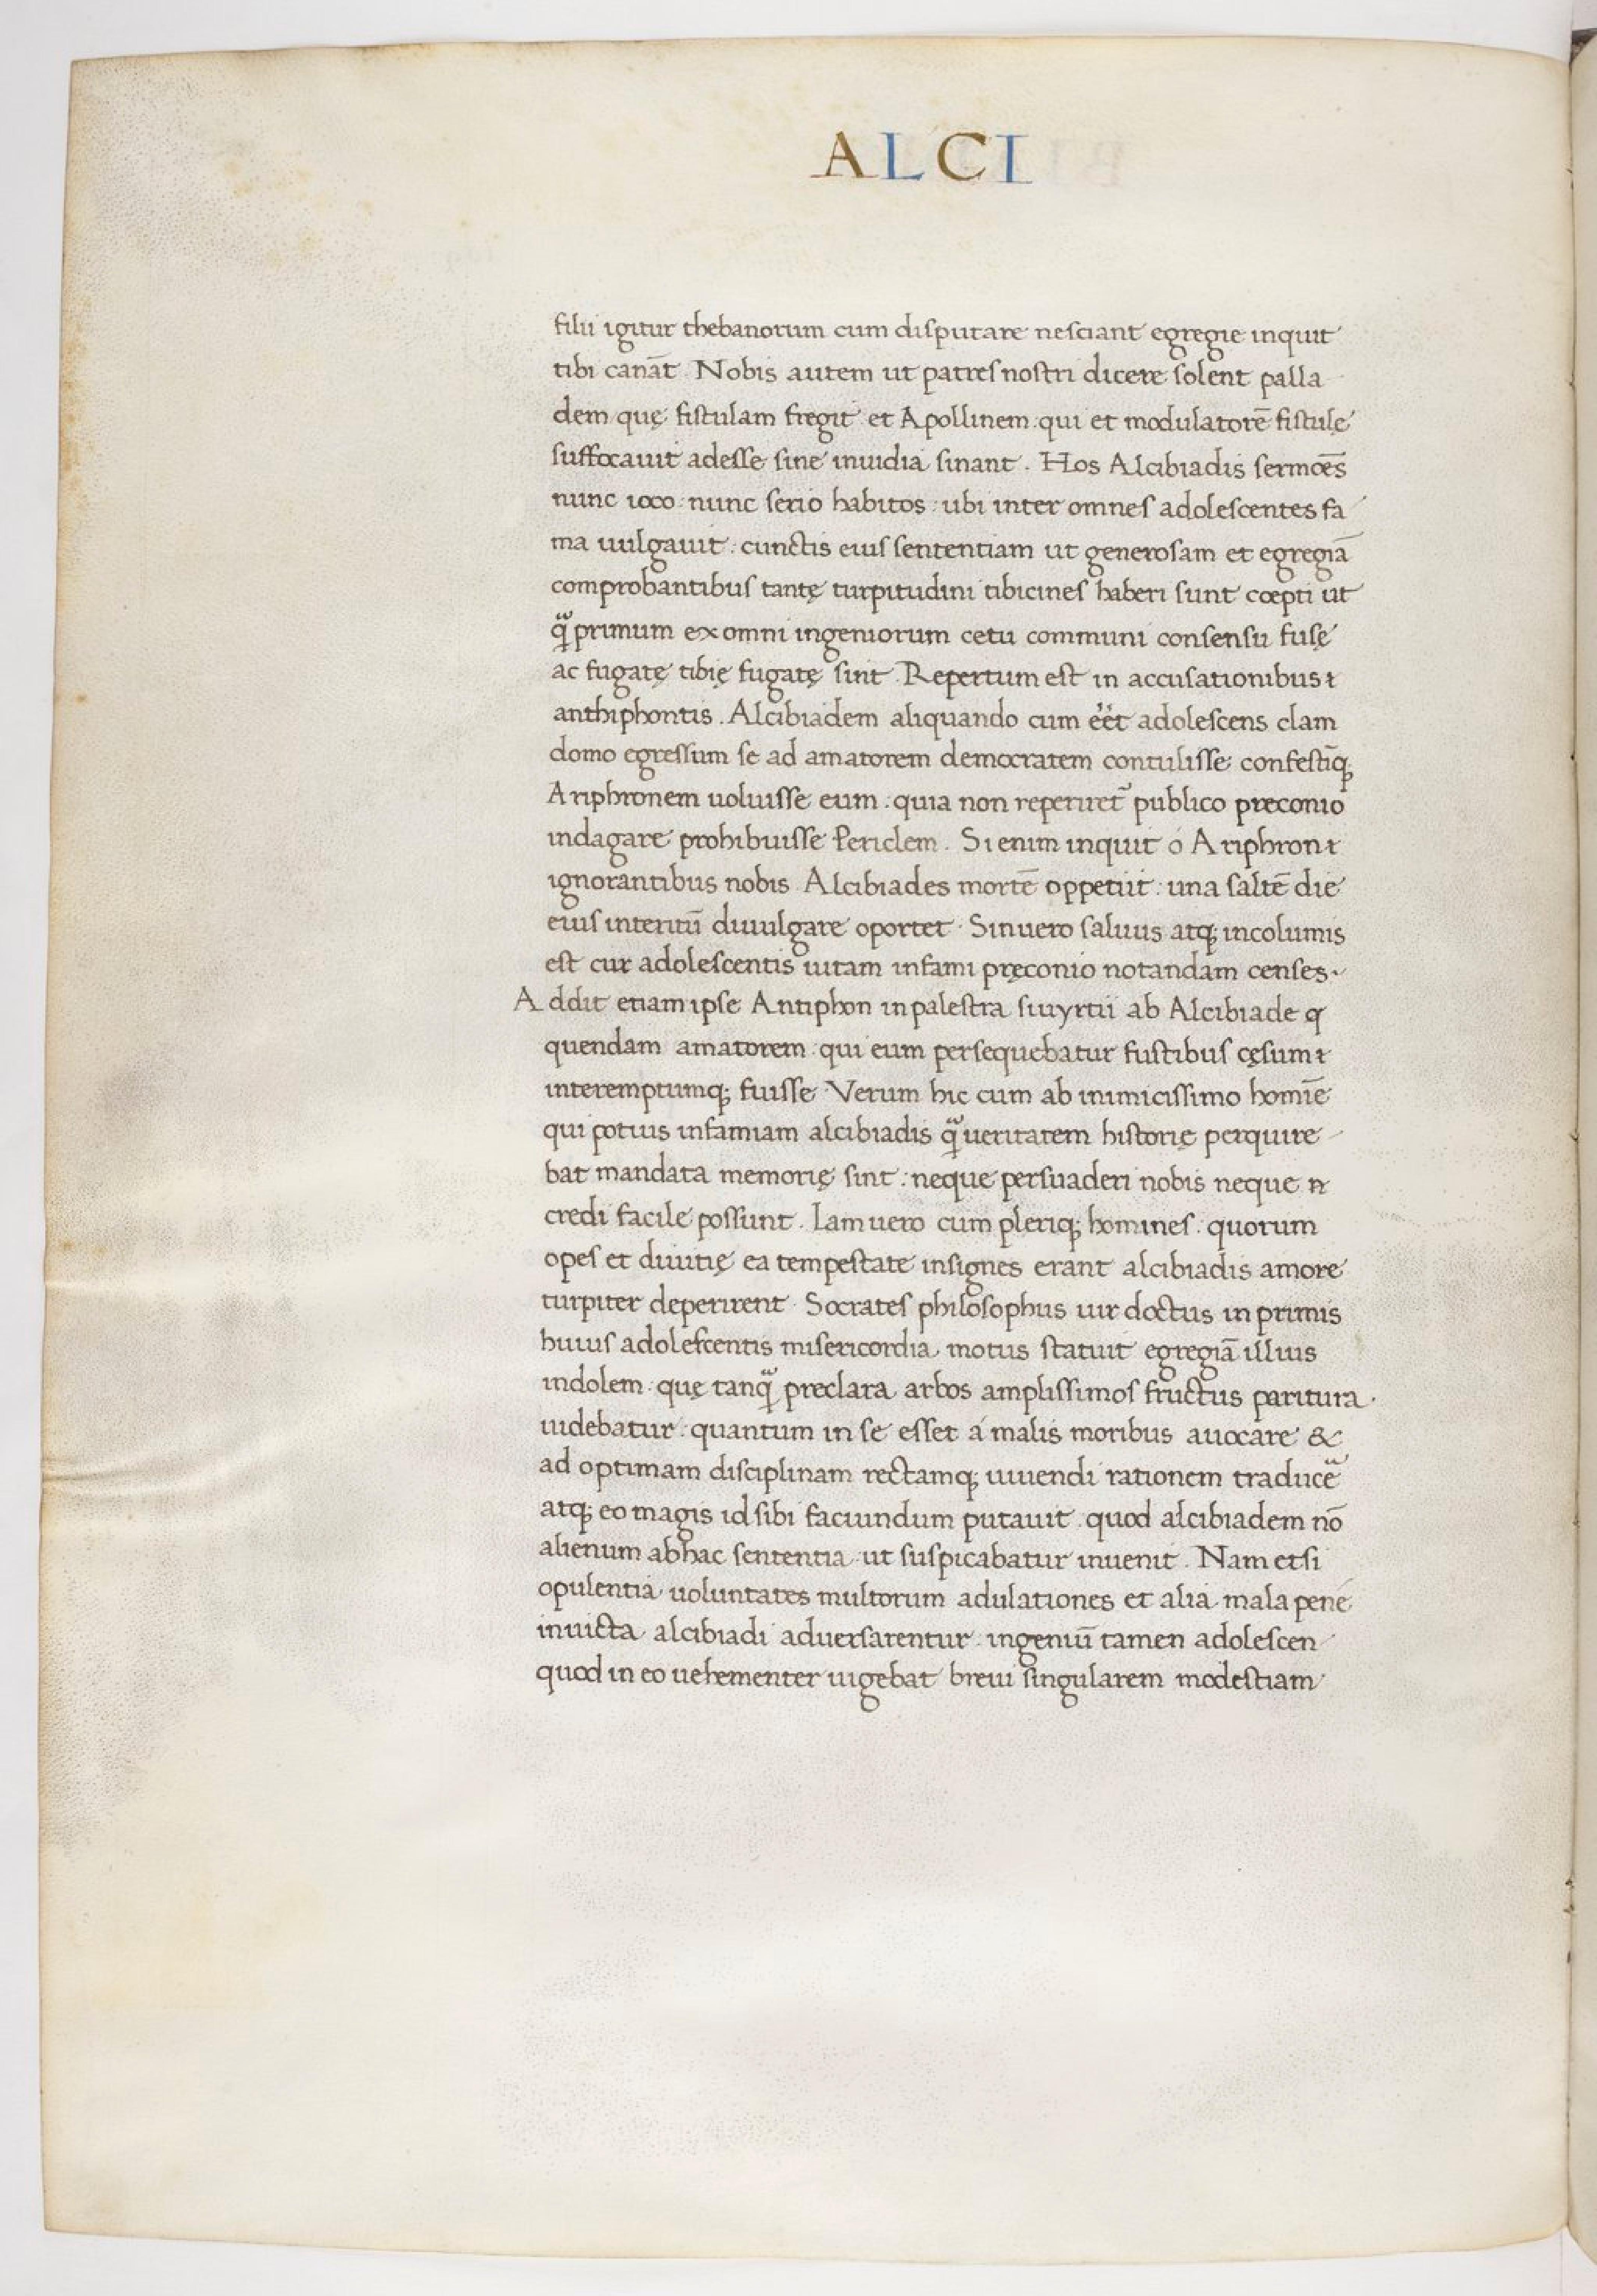 ALCI
filii igitur thebanorum cum disputare nesciant egregie inquit
tibi canāt. Nobis autem ut patres nostri dicere solent palla
dem quę fistulam fregit et Apollinem: qui et modulatorē fistulę
suffocauit adesse sine inuidia sinant. Hos Alcibiadis sermōes
nunc ioco: nunc serio habitos: ubi inter omnes adolescentes fa
ma uulgauit: cunctis eius sententiam ut generosam et egregiā
comprobantibus tantę turpitudini tibicines haberi sunt coepti ut
q̃ primum ex omni ingeniorum cetu communi consensu fusę
ac fugatę tibię fugatę sint. Repertum est in accusationibus
anthiphontis. Alcibiadem aliquando cum ēēt adolescens clam
domo egressum se ad amatorem democratem contulisse: confestīq;
Ariphronem uoluisse eum: quia non reperiret᷑ publico preconio
indagare prohibuisse Periclem. Si enim inquit ó Ariphron
ignorantibus nobis Alcibiades mortē oppetiit: una saltē die
eius interitū diuulgare oportet. Sin uero saluus atq; incolumis
est cur adolescentis uitam infami pręconio notandam censes.
Addit etiam ipse Antiphon in palestra siuyrtii ab Alcibiade
quendam amatorem: qui eum persequebatur fustibus cęsum
interemptumq; fuisse. Verum hic cum ab inimicissimo homīe
qui potius infamiam alcibiadis q̃ ueritatem historię perquire
bat mandata memorię sint: neque persuaderi nobis neque
credi facile possunt. Iam uero cum pleriq; homines: quorum
opes et diuitię ea tempestate insignes erant alcibiadis amore
turpiter deperirent. Socrates philosophus uir doctus in primis
huius adolescentis misericordia motus statuit egregiā illius
indolem: quę tanq̃ preclara arbos amplissimos fructus paritura
uidebatur: quantum in se esset á malis moribus auocare &
ad optimam disciplinam rectamq; uiuendi rationem traducē
atq; eo magis id sibi faciundum putauit: quod alcibiadem nō
alienum ab hac sententia ut suspicabatur inuenit. Nam etsi
opulentia uoluntates multorum adulationes et alia mala pene
inuicta alcibiadi aduersarentur: ingeniū tamen adolescen
quod in eo uehementer uigebat breui singularem modestiam